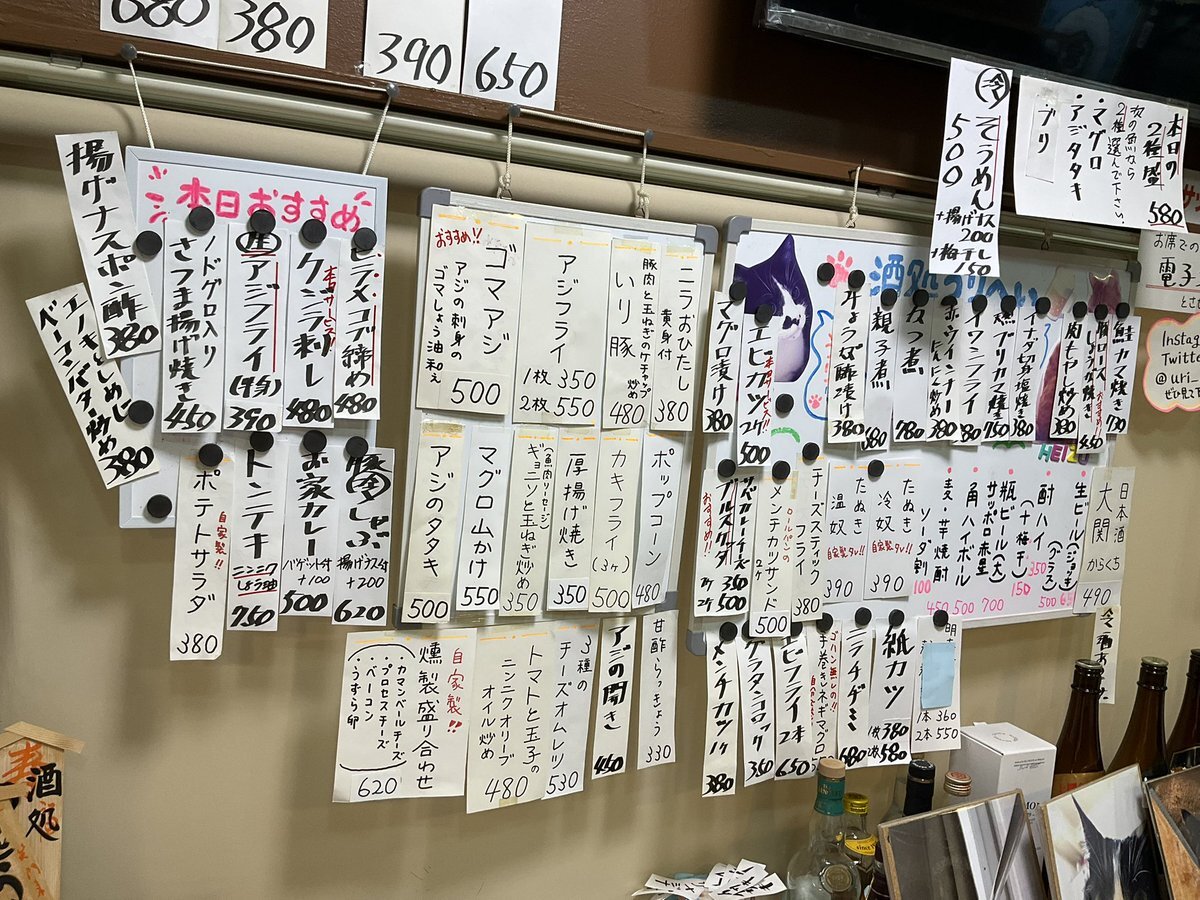 680
380
390
650
揚げナスポン酢 380
エノキしめじ
ベーコンバター炒め 380
本日おすすめ
ノドグロ入り
さつま揚げ焼き 450
アジフライ 390
クジラ刺し 480
本日サービス
ヒラメコブ締め 480
自家製!!
ポテトサラダ 380
トンテキ
ニンニク
しょう油
750
お家カレー
バゲット付
+100
500
豚しゃぶ
620
おすすめ!!
ゴマアジ
アジの刺身の
ゴマしょう油和え
500
アジフライ
1枚 350
2枚 550
いり豚
豚肉と玉ねぎのケチャップ
炒め
480
ニラおひたし
黄身付
380
アジのタタキ
500
マグロ山かけ
550
(魚肉ソーセージ)
ギョニソと玉ねぎ炒め
350
厚揚げ焼き
350
カキフライ(3ヶ)
500
ポップコーン
480
自家製!!
燻製盛り合わせ
・カマンベールチーズ
・プロセスチーズ
・ベーコン
・うずら卵
620
トマトと玉子の
ニンニクオリーブ
オイル炒め
480
3種の
チーズオムレツ
530
アジの開き
450
甘酢らっきょう
330
酒処
マグロ漬け 380
エビカツ 2ケ 500
親子煮
赤ウインナー
にんにん炒め 380
イワシフライ
ブリカマ焼き 750
肉モヤシ炒め 380
鮭カマ焼き
おすすめ!!
ブルスケッタ
メンチカツサンド
ロールパンの
2ケ
500
チーズスティック
フライ
380
たぬき
温奴
自家製タレ!!
390
たぬき
冷奴
自家製タレ!!
390
ソーダ割
100
麦・芋焼酎
450
角ハイボール
500
瓶ビール(大)
サッポロ赤星
700
酎ハイ
350
(+梅干し)
150
生ビール(ジョッキ)
(グラス)
日本酒
大関
からくち
490
メンチカツ 1ケ 380
エビフライ 2本 650
ゴハン無しの!!
手巻きネギマグロ
ニラチヂミ 680
紙カツ
1枚 380
2枚 580
1本 360
2本 550
そうめん
500
+揚げナス
200
+梅干し
150
本日の
2種盛
580
次の魚から
2種選んで下さい。
・マグロ
・アジタタキ
・ブリ
お席での
電子
Instag
Twitte
@uri-
酒処